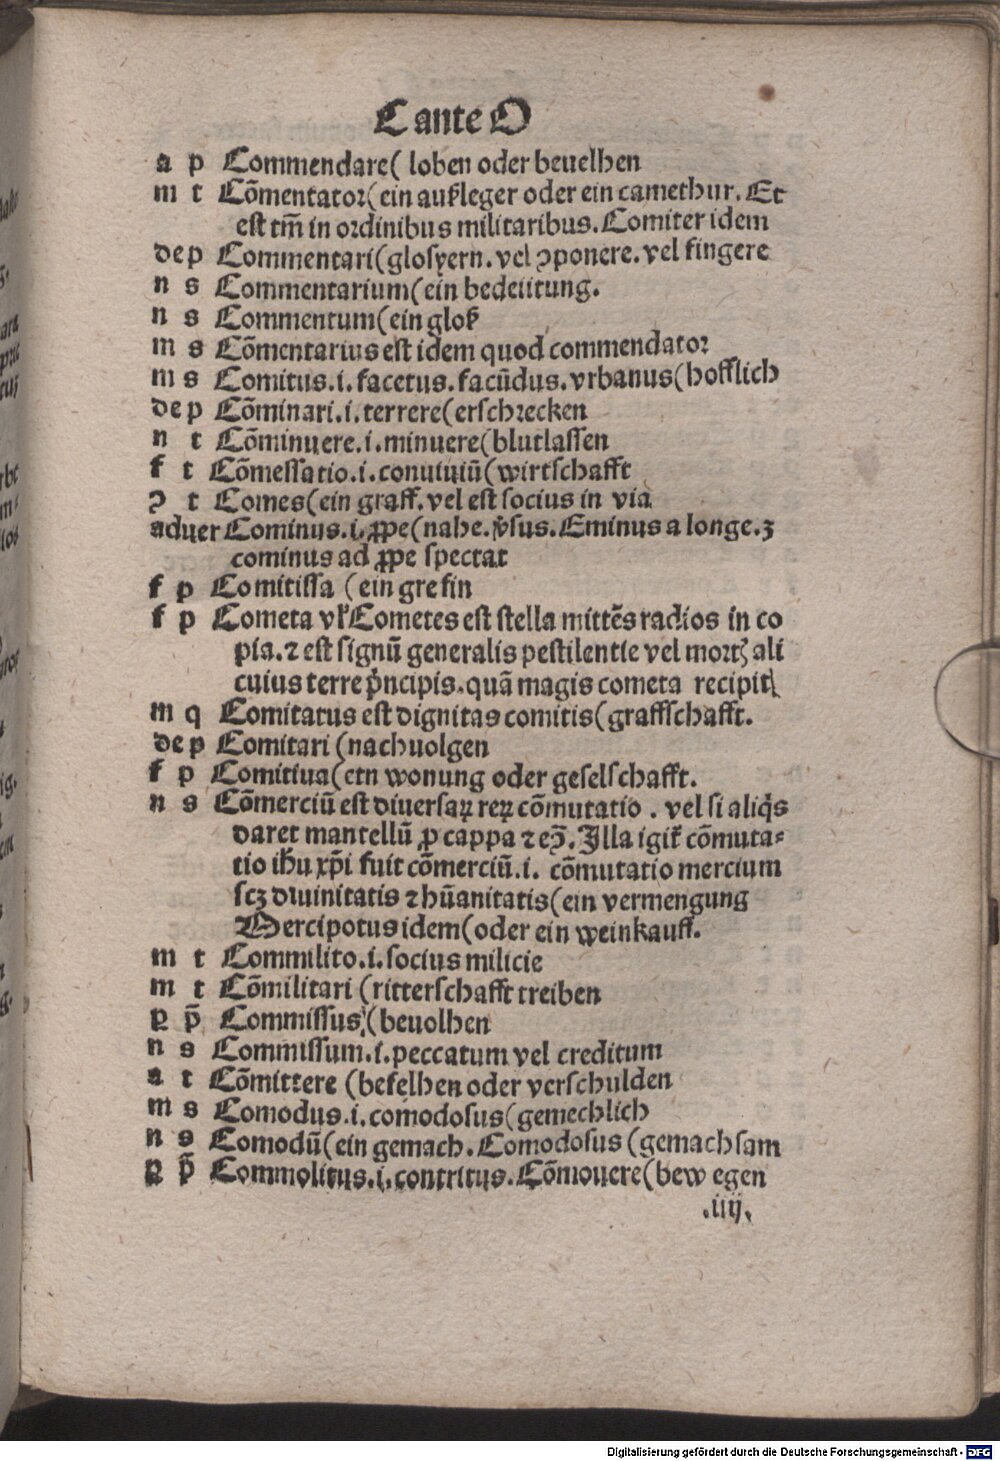 C ante O
a p Commendare( loben oder beuelhen
m t Cõmentator(ein außleger oder ein camethur. Et
est tm̃ in ordinibus militaribus. Comiter idem
de p Commentari(glosyern. vel ꝯponere. vel fingere
n s Commentarium(ein bedeütung.
n s Commentum(ein gloß
m s Cõmentarius est idem quod commendator
m s Comitus. i. facetus. facũdus. vrbanus(hofflich
de p Cõminari. i. terrere(erschrecken
n t Cõminuere. i. minuere(blutlassen
f t Cõmessatio. i. conuiuiũ(wirtschafft
ꝯ t Comes(ein graff. vel est socius in via
aduer Cominus. i. ꝓpe(nahe. v̾sus. Eminus a longe. ꝫ
cominus ad ꝓpe spectat
f p Comitissa (ein grefin
f p Cometa vl̾ Cometes est stella mittẽs radios in co
pia. ⁊ est signũ generalis pestilentie vel mortꝭ ali
cuius terre p̾ncipis. quã magis cometa recipit
m q Comitatus est dignitas comitis(graffschafft.
de p Comitari (nachuolgen
f p Comitiua(ein wonung oder geselschafft.
n s Cõmerciũ est diuersaꝝ reꝝ cõmutatio . vel si aliq̾s
daret mantellũ ꝓ cappa ⁊ eꝯ̃. Illa igit̾ cõmuta⸗
tio ih̾u xp̃i fuit cõmerciũ. i. cõmutatio mercium
scꝫ diuinitatis ⁊ hũanitatis(ein vermengung
Mercipotus idem(oder ein weinkauff.
m t Commilito. i. socius milicie
m t Cõmilitari (ritterschafft treiben
ꝑ p̃ Commissus (beuolhen
n s Commissum. i. peccatum vel creditum
a t Cõmittere (befelhen oder verschulden
m s Comodus. i. comodosus(gemechlich
n s Comodũ(ein gemach. Comodosus (gemachsam
ꝑ p̃ Commolitus. i. contritus. Cõmouere(bewegen
.iiij.
Digitalisierung gefördert durch die Deutsche Forschungsgemeinschaft - DFG